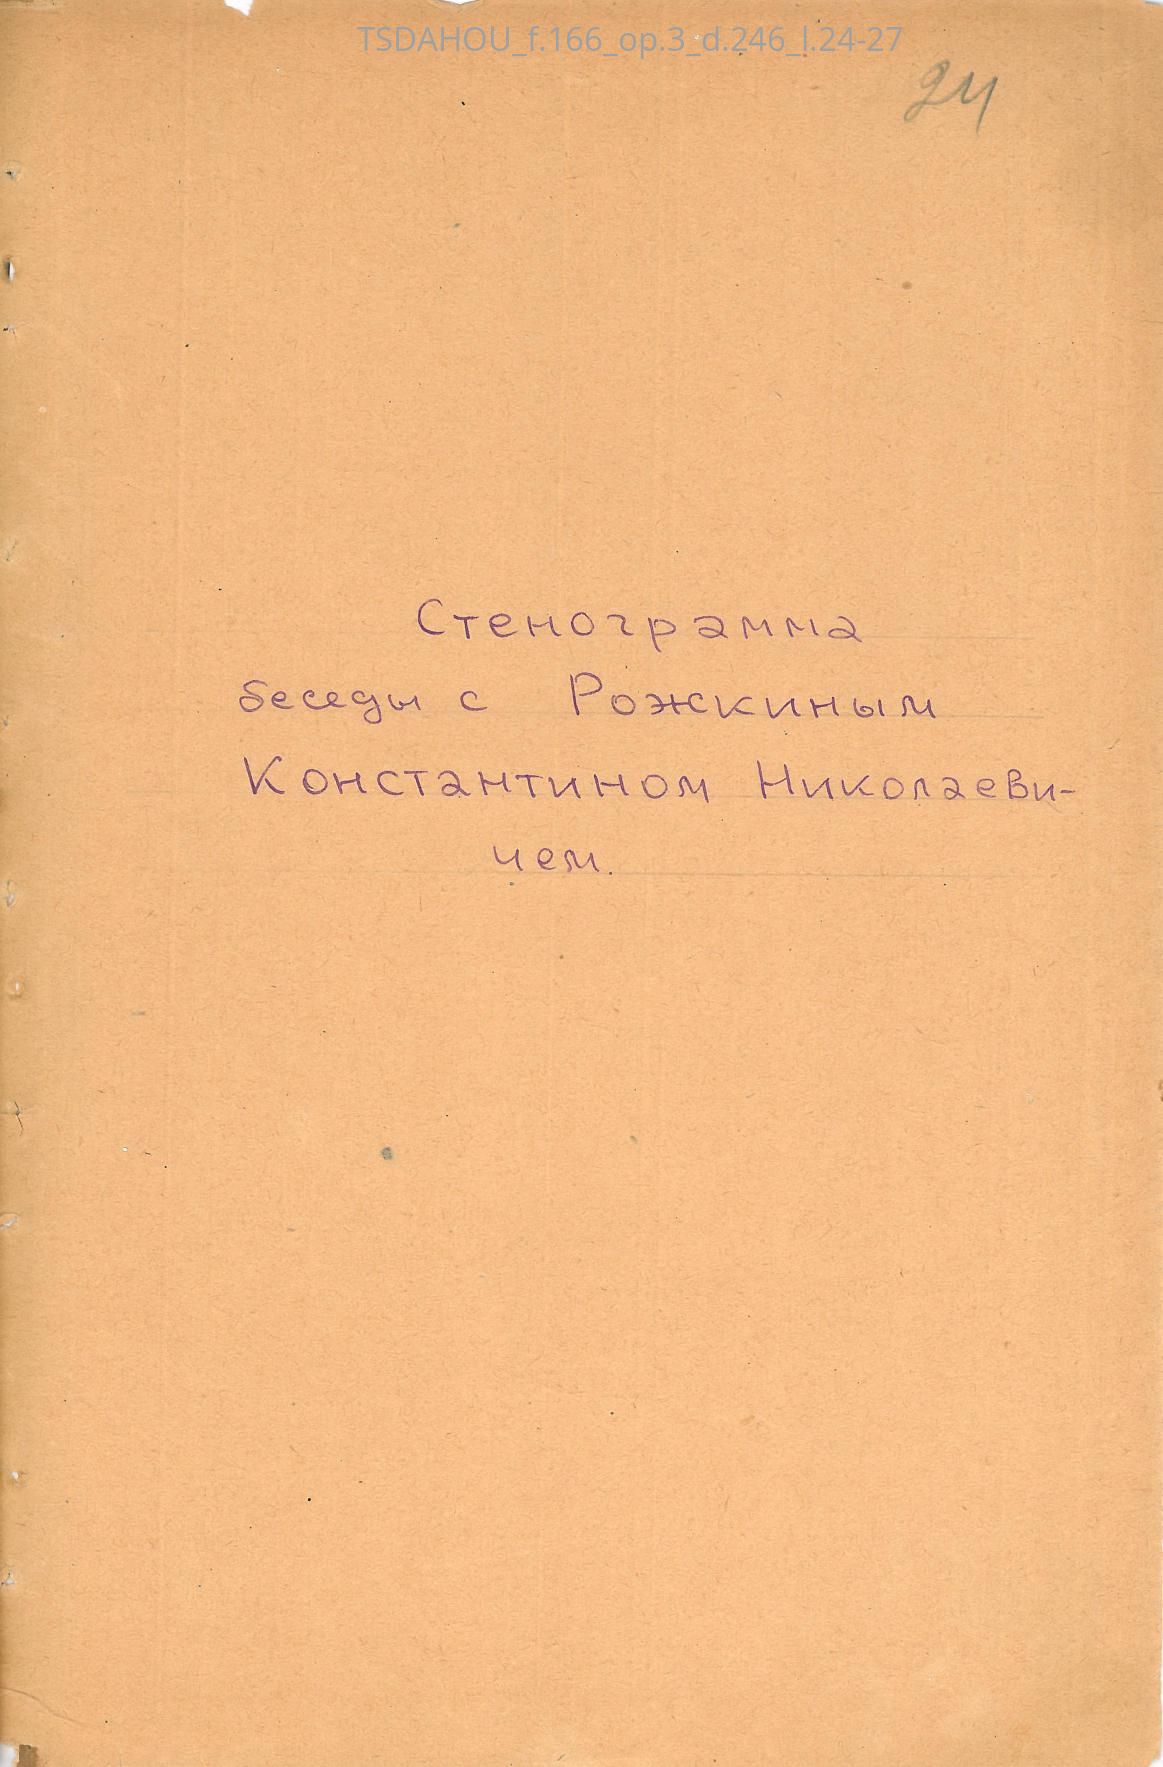 TSDAHOU_f.166_op.3_d.246_l.24-27
24
Стенограмма
беседы с Рожкиным
Константином Николаеви-
чем.